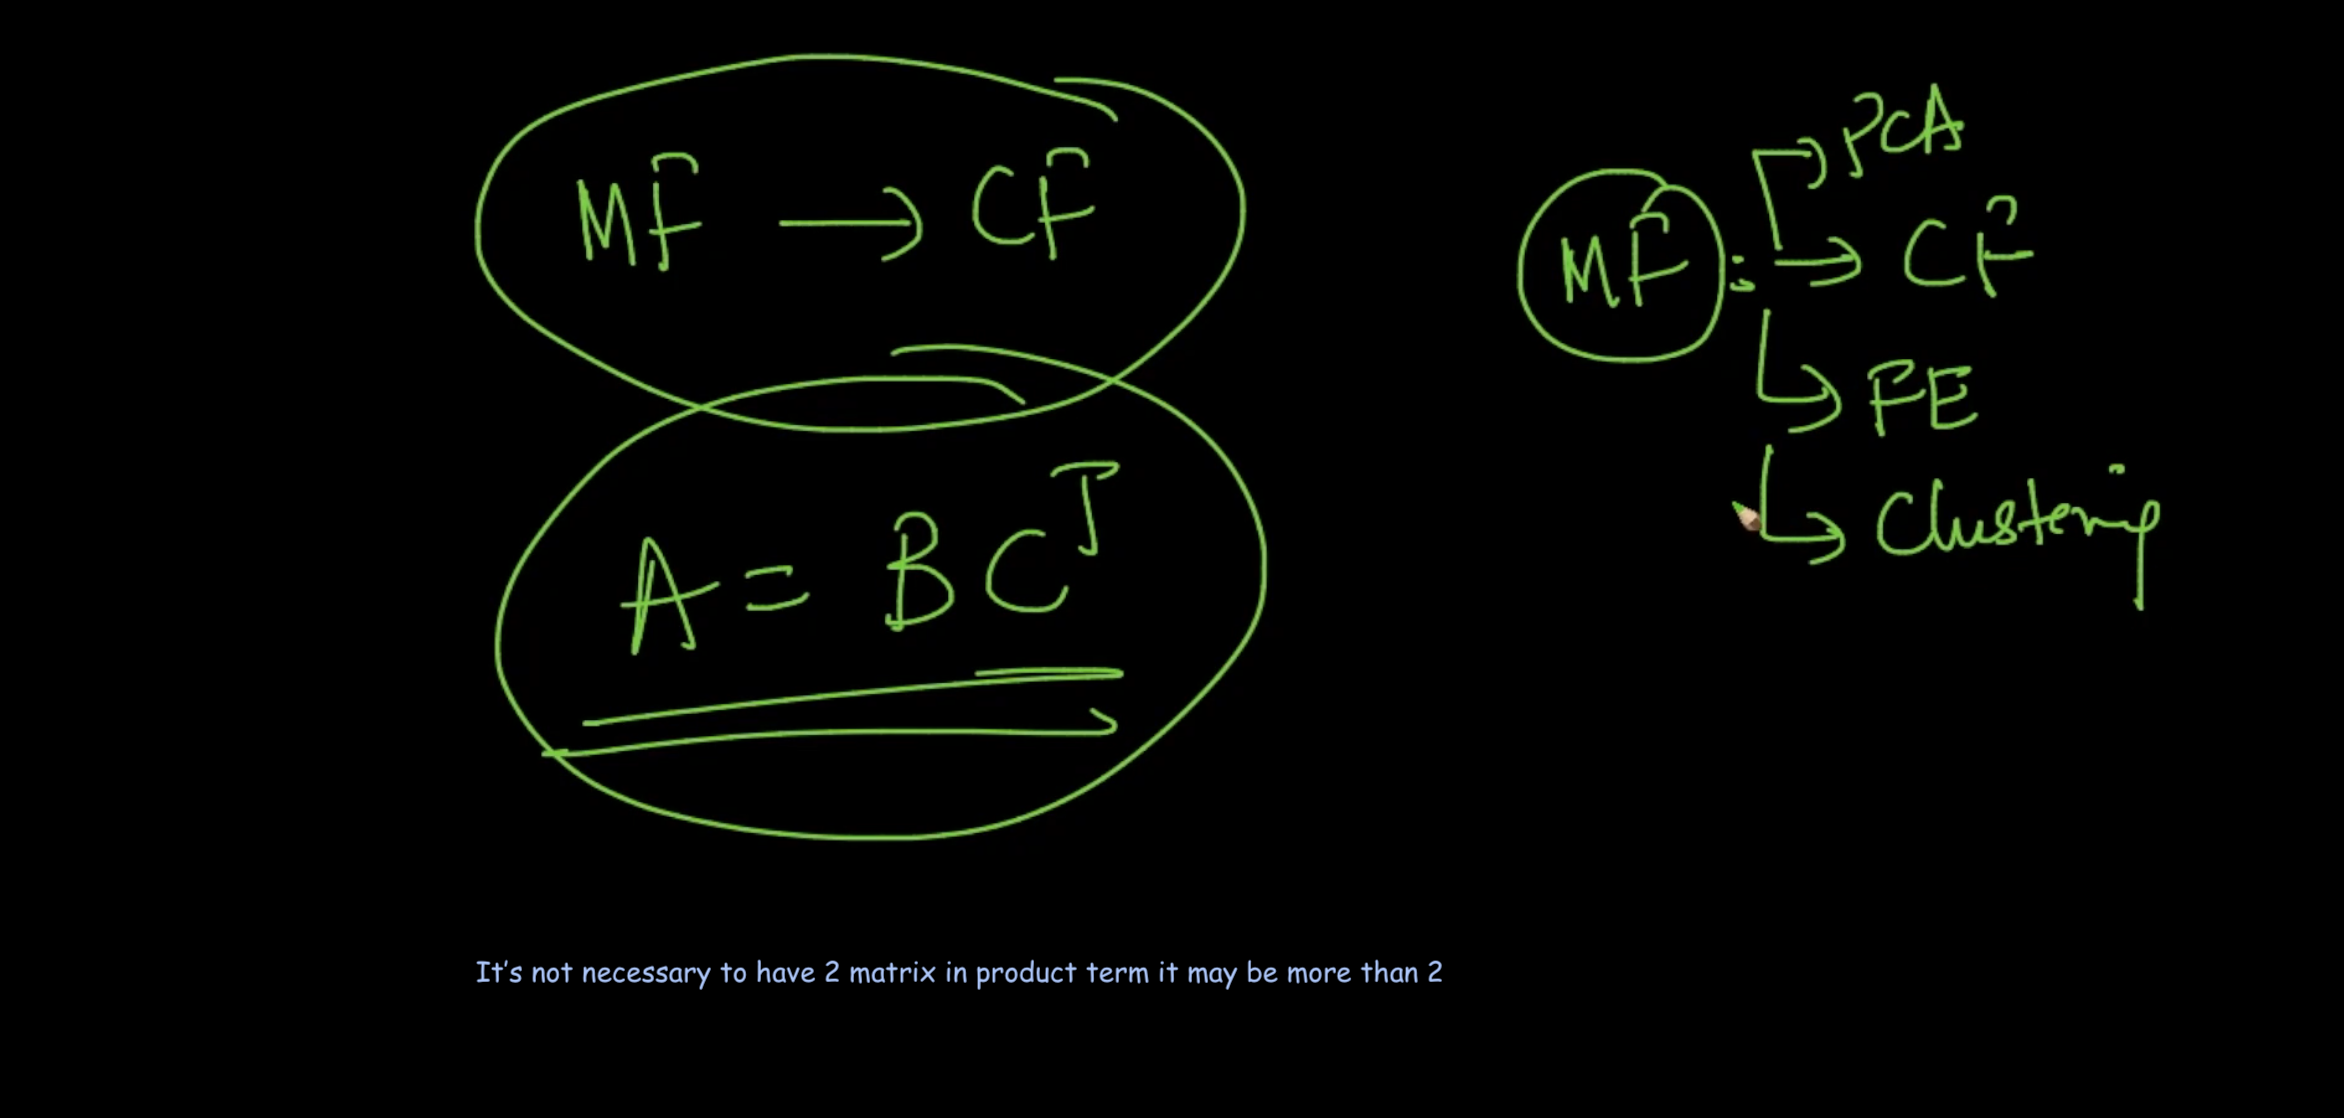 MF → CF
A = BC^T
MF : → PCA
→ CF
→ FE
→ Clustering
It's not necessary to have 2 matrix in product term it may be more than 2